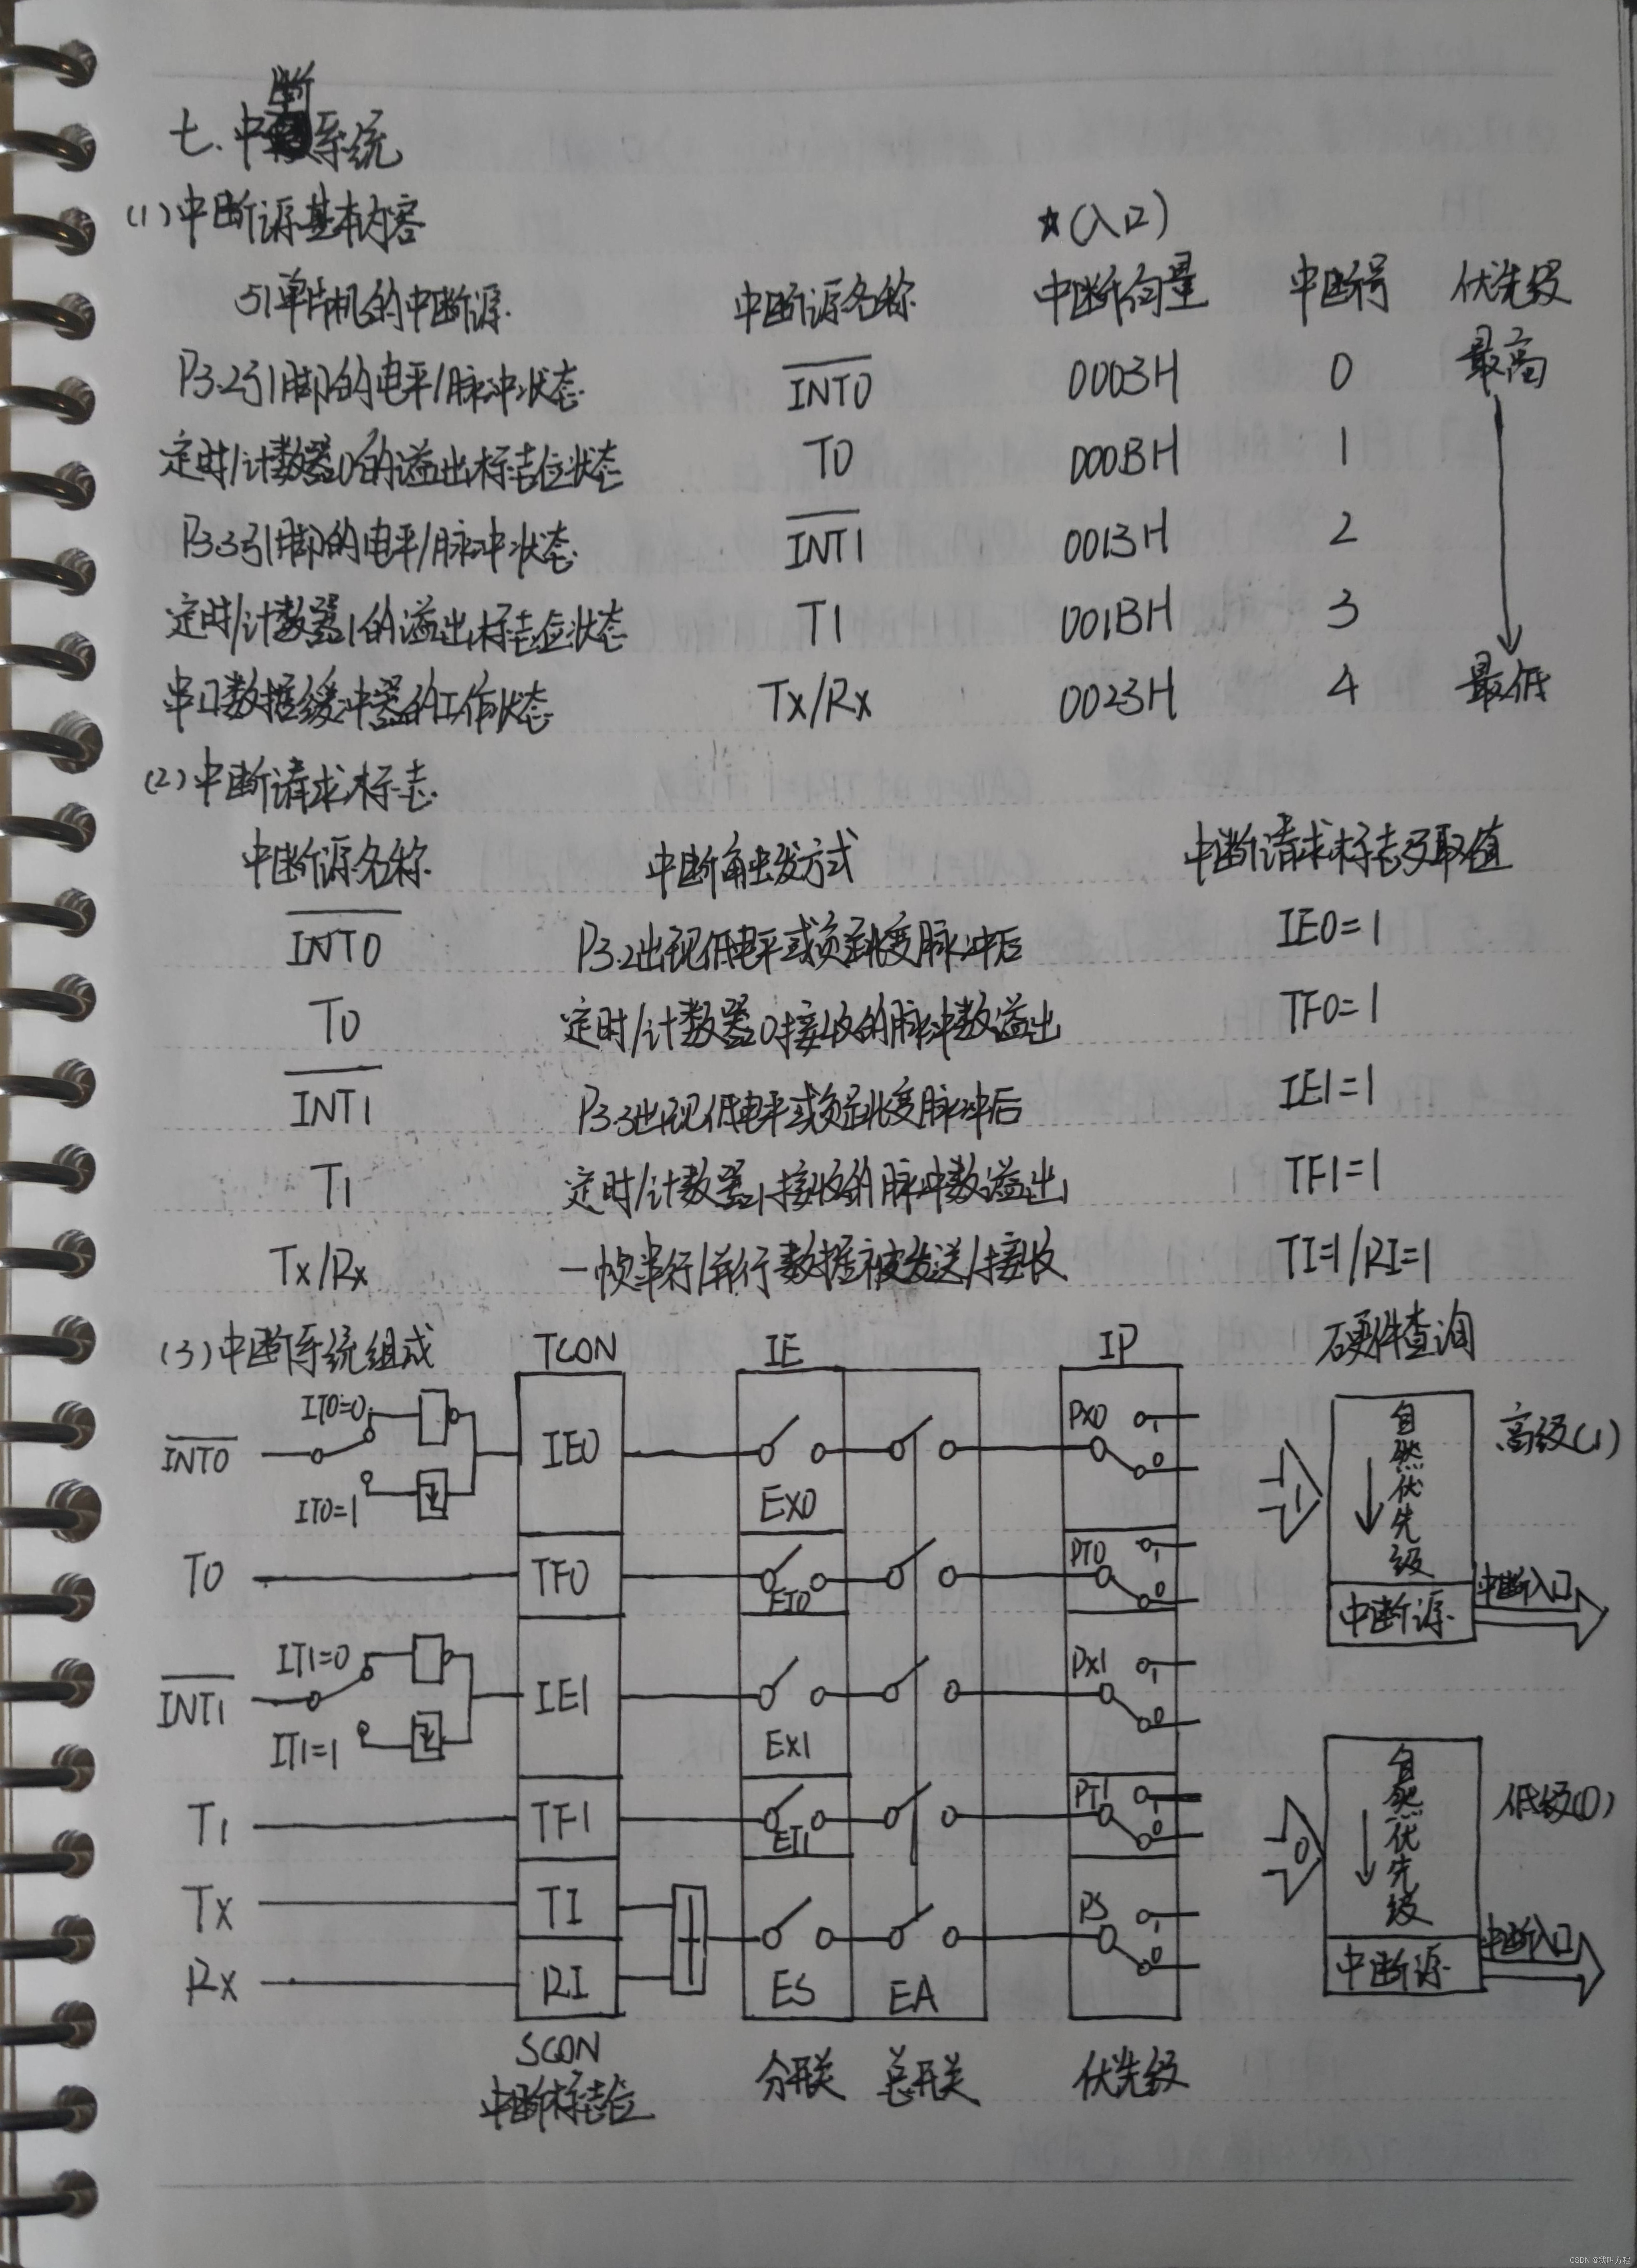 七.中断系统
(1)中断源基本内容
☆(入口)
51单片机的中断源. 中断源名称 中断向量 中断号 优先级
P3.2引脚的电平/脉冲状态 INT0 0003H 0 最高
定时/计数器0的溢出标志位状态 T0 000BH 1
P3.3引脚的电平/脉冲状态 INT1 0013H 2
定时/计数器1的溢出标志位状态 T1 001BH 3
串口数据缓冲器的工作状态 Tx/Rx 0023H 4 最低
(2)中断请求标志
中断源名称 中断触发方式 中断请求标志及取值
INT0 P3.2出现低电平或负跳变脉冲后 IE0=1
T0 定时/计数器0接收的脉冲数溢出 TF0=1
INT1 P3.3出现低电平或负跳变脉冲后 IE1=1
T1 定时/计数器1接收的脉冲数溢出 TF1=1
Tx/Rx 一帧串行/并行数据被发送/接收 TI=1/RI=1
(3)中断系统组成 TCON IE IP 硬件查询
INT0 IT0=0 IT0=1 IE0 EX0 PX0 1 0 1 自然优先级 高级(1)
T0 TF0 ET0 PT0 1 0 中断源 中断入口
INT1 IT1=0 IT1=1 IE1 EX1 PX1 1 0
T1 TF1 ET1 PT1 1 0 0 自然优先级 低级(0)
Tx TI ES EA PS 1 0 中断源 中断入口
Rx RI
SCON
中断标志位 分开关 总开关 优先级
CSDN @我叫方程